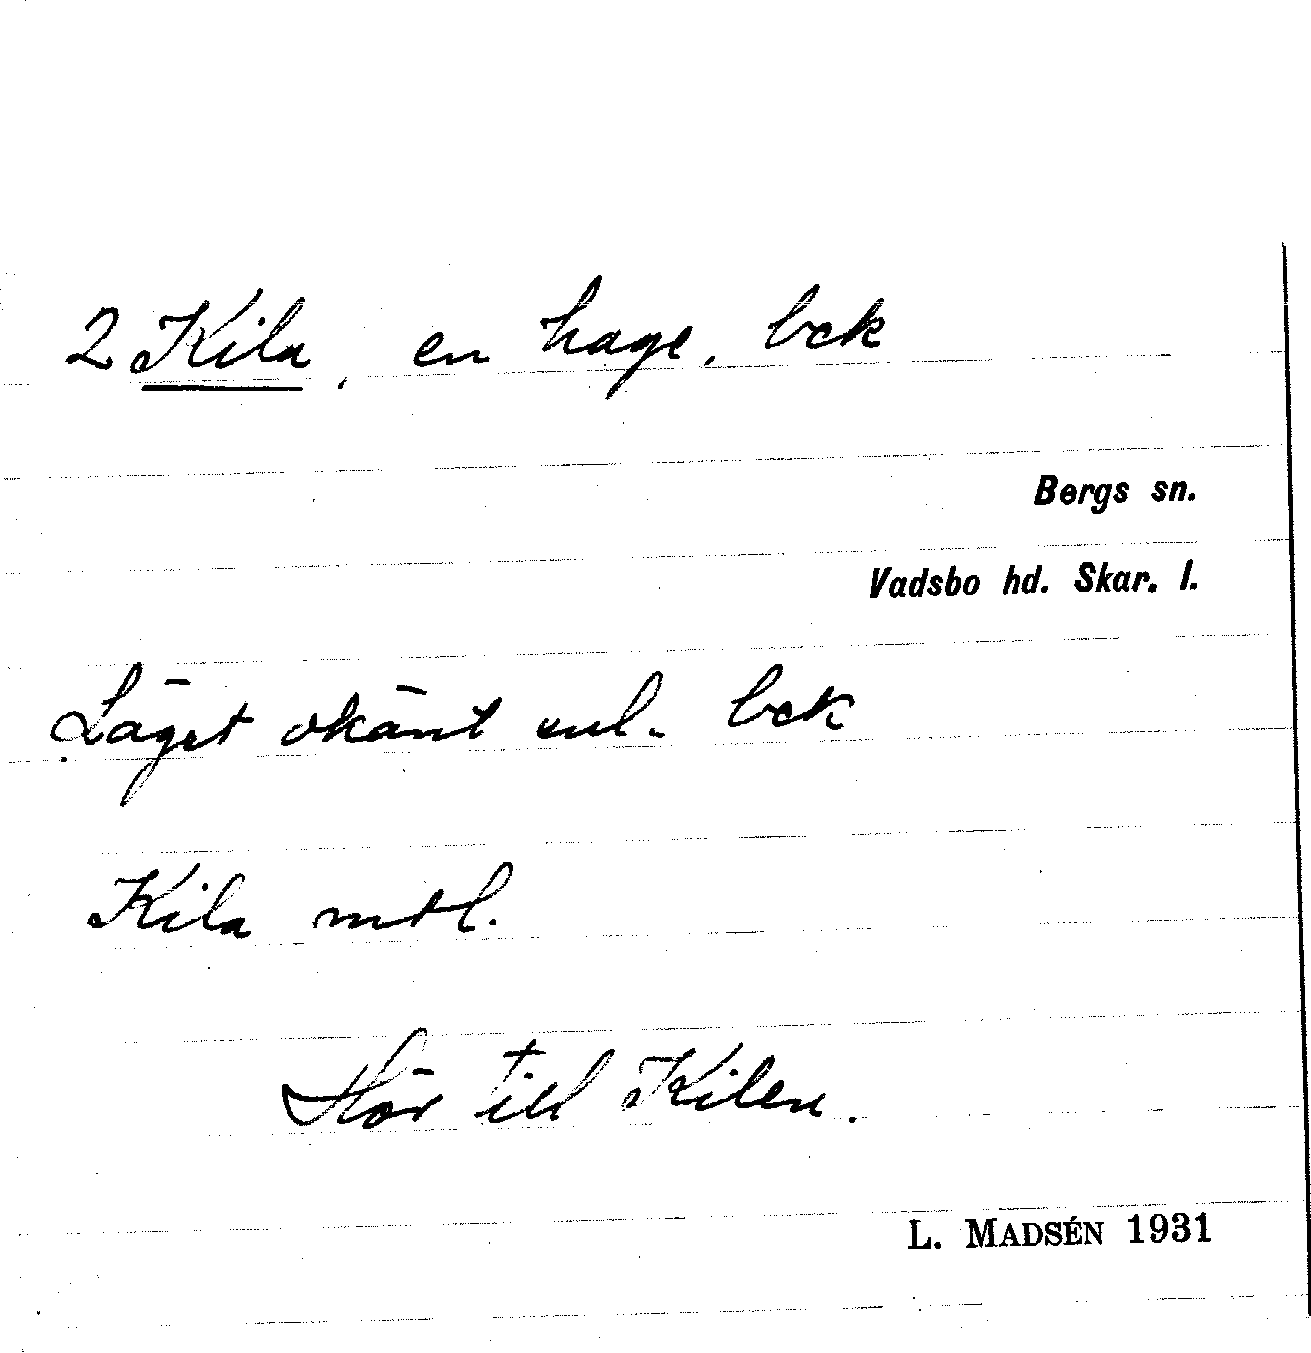 2 Kila, en hage, bck
Bergs sn.
Vadsbo hd. Skar. l.
Läget okänt enl. bck
Kila mtl.
Hör till Kilen.
L. MADSÉN 1931